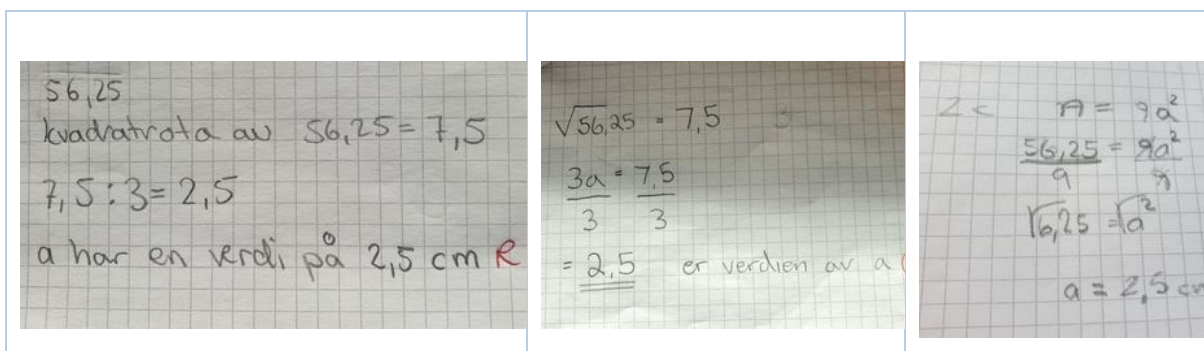 56,25
kvadratrota av 56,25 = 7,5
7,5 : 3 = 2,5
a har en verdi på 2,5 cm R
√56,25 = 7,5
3a = 7,5
3 3
= 2,5 er verdien av a
2c A = 9a²
56,25 = 9a²
9 9
√6,25 = √a²
a = 2,5 cm